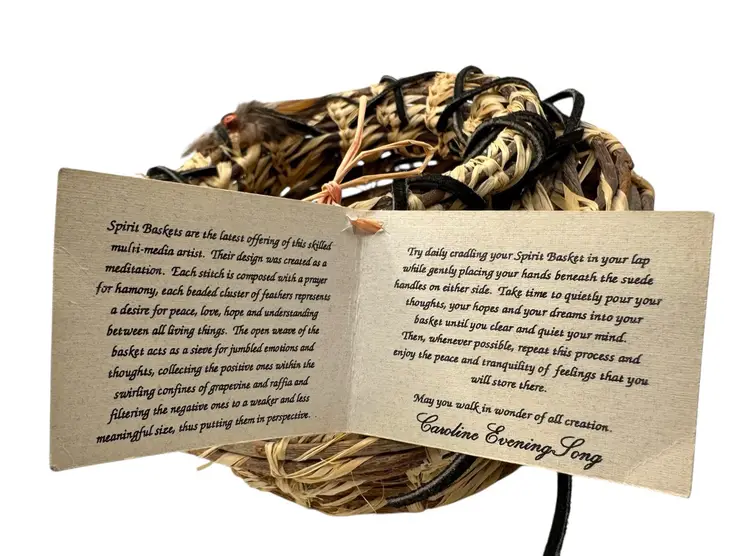 Spirit Baskets are the latest offering of this skilled
multi-media artist. Their design was created as a
meditation. Each stitch is composed with a prayer
for hamony, each beaded cluster of feathers represents
a desire for peace, love, hope and understanding
between all living things. The open weave of the
basket acts as a sieve for jumbled emotions and
thoughts, collecting the positive ones within the
swirling confines of grapevine and raffia and
filtering the negative ones to a weaker and less
meaningful size, thus putting them in perspective. .
Try daily cradling your Spirit Basket in your lap
while gently placing your hands beneath the suede
handles on either side. Take time to quietly pour your
thoughts, your hopes and your dreams into your
basket until you clear and quiet your mind.
Then, whenever possible, repeat this process and
enjoy the peace and tranquility of feelings that you
will store there.
May you walk in wonder of all creation.
Caroline EveningSong